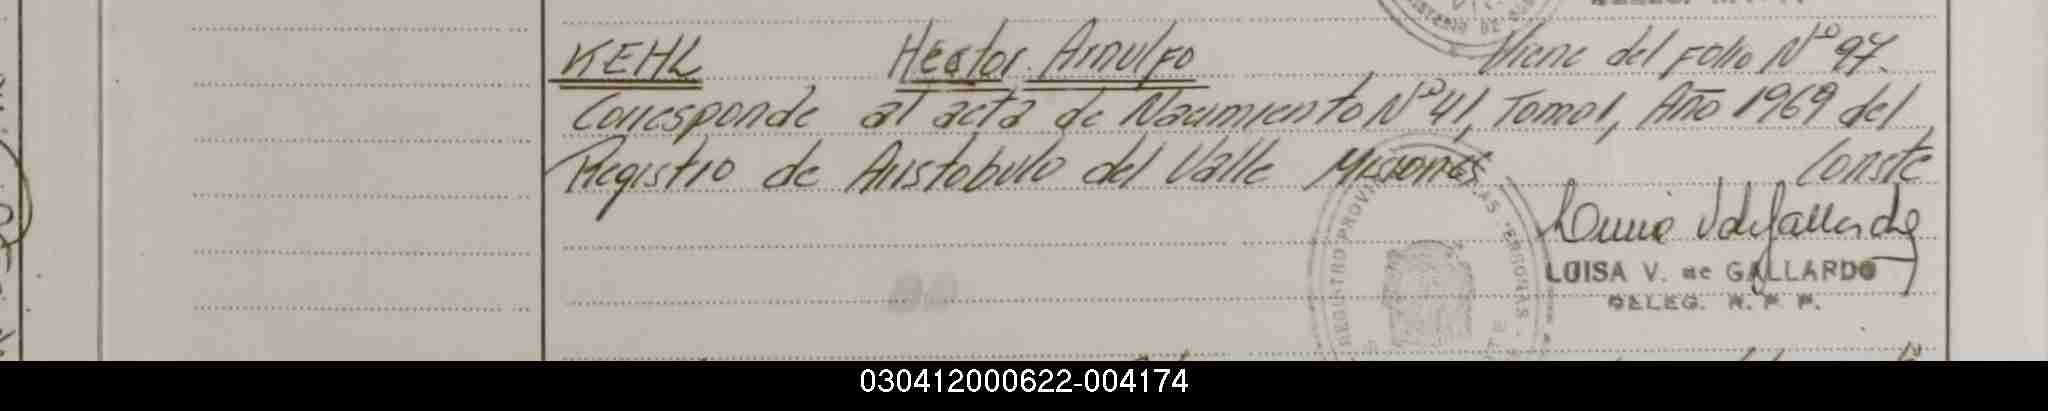 KEHL Hector Arnulfo Viene del Folio Nº 97.
Corresponde al acta de Nacimiento Nº 41, Tomo 1, Año 1969 del
Registro de Aristobulo del Valle Misiones Conste
LUISA V. de GALLARDO
DELEG. R. P. P.
REGISTRO PROVINCIAL DE LAS PERSONAS
030412000622-004174